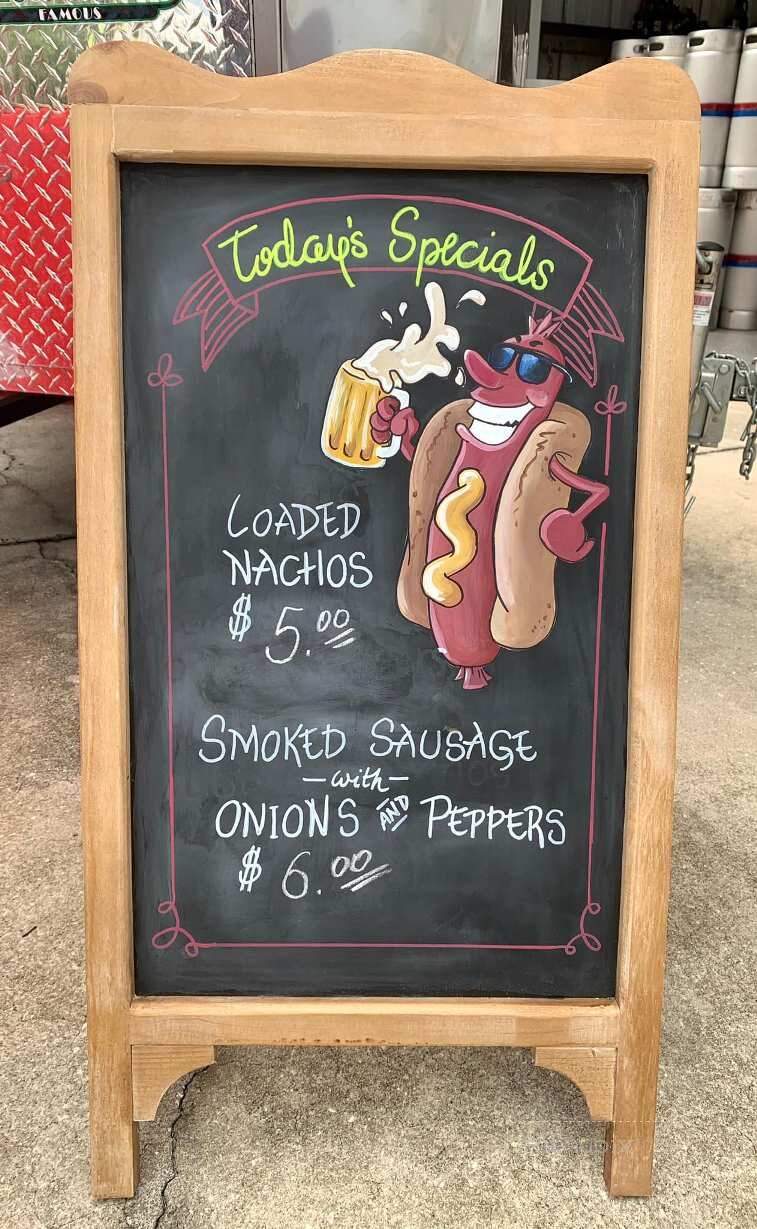 FAMOUS
Today's Specials
LOADED
NACHOS
$ 5.00
SMOKED SAUSAGE
—with—
ONIONS AND PEPPERS
$ 6.00